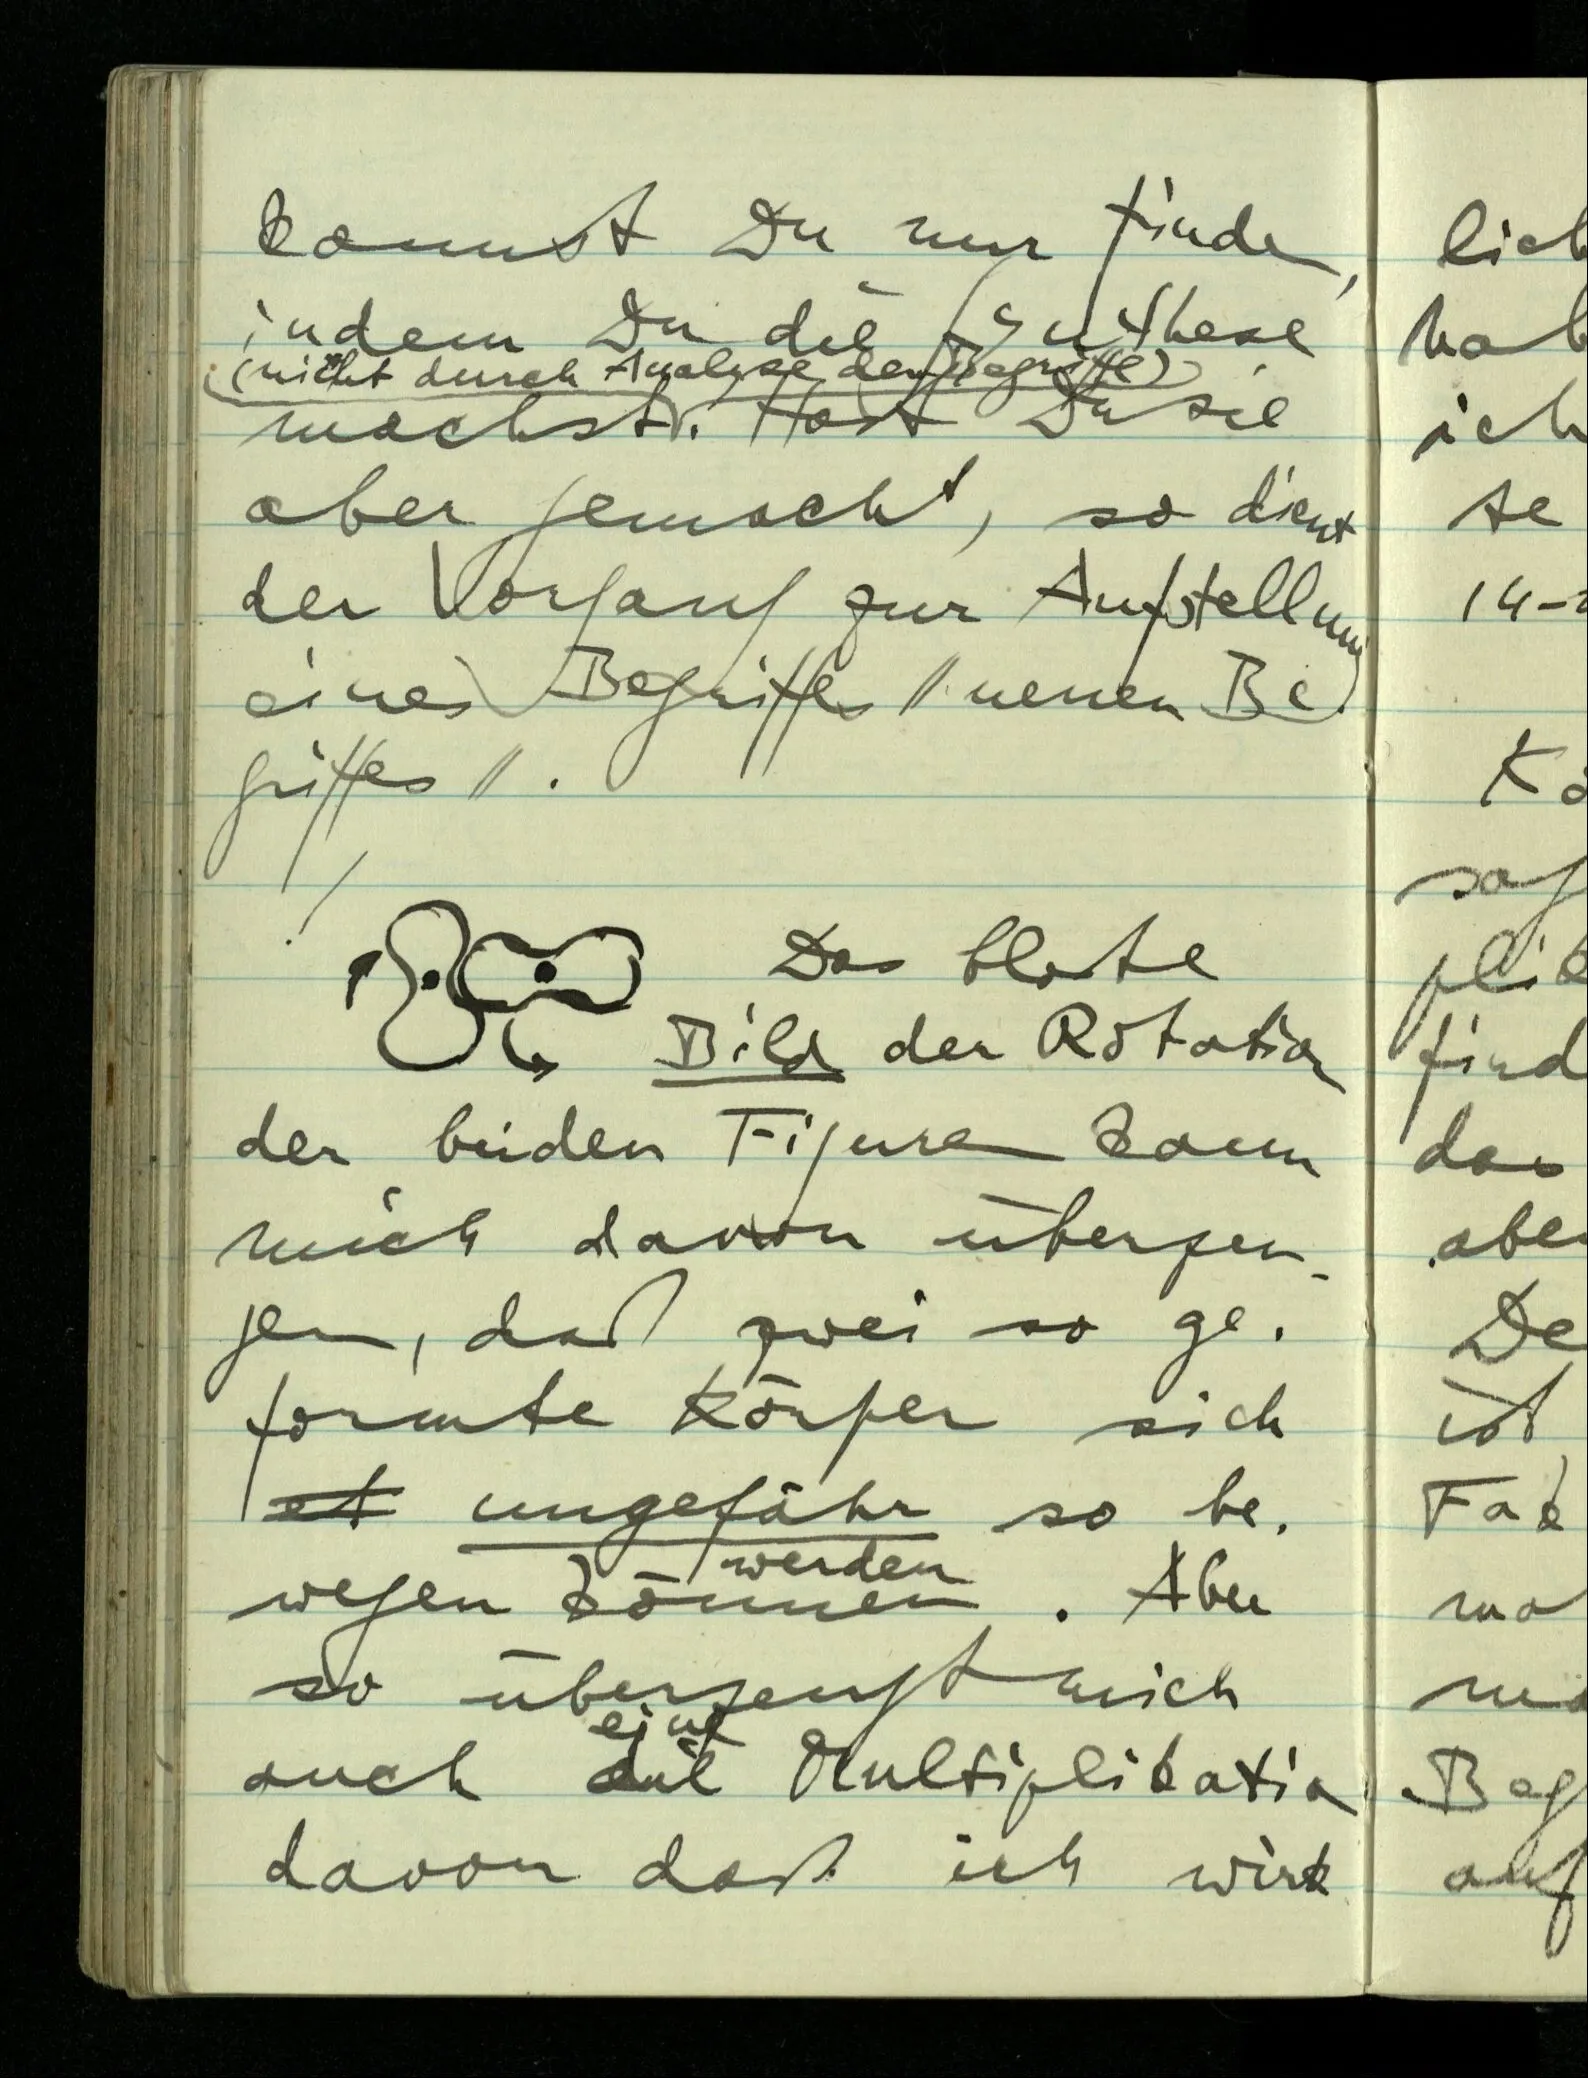 kannst Du nur finden,
indem Du die Synthese
(nicht durch Analyse der Begriffe)
machst. Hast Du sie
aber gemacht, so dient
der Vorgang zur Aufstellung
eines Begriffes // neuen Be
griffes //.
/
Das bloße
Bild der Rotation
der beiden Figuren kann
mich davon überzeu-
gen, daß zwei so ge-
formte Körper sich
et ungefähr so be-
werden
wegen können. Aber
so überzeugt mich
eine
auch die Multiplikation
davon daß ich wirk
lich
hab
ich
te
14-
Ko
sag
plik
find
das
aber
De
ist
Fak
ma
ma
Beg
auf